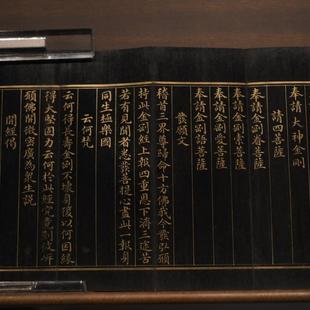 奉請 大神金剛
請四菩薩
奉請金剛眷菩薩
奉請金剛索菩薩
奉請金剛愛菩薩
奉請金剛語菩薩
發願文
稽首三界尊歸命十方佛我今發弘願
持此金剛經上報四重恩下濟三途苦
若有見聞者悉發菩提心盡此一報身
同生極樂國
云何梵
云何得長壽金剛不壞身復以何因緣
得大堅固力云何於此經究竟到彼岸
願佛開微密廣為眾生說
開經偈